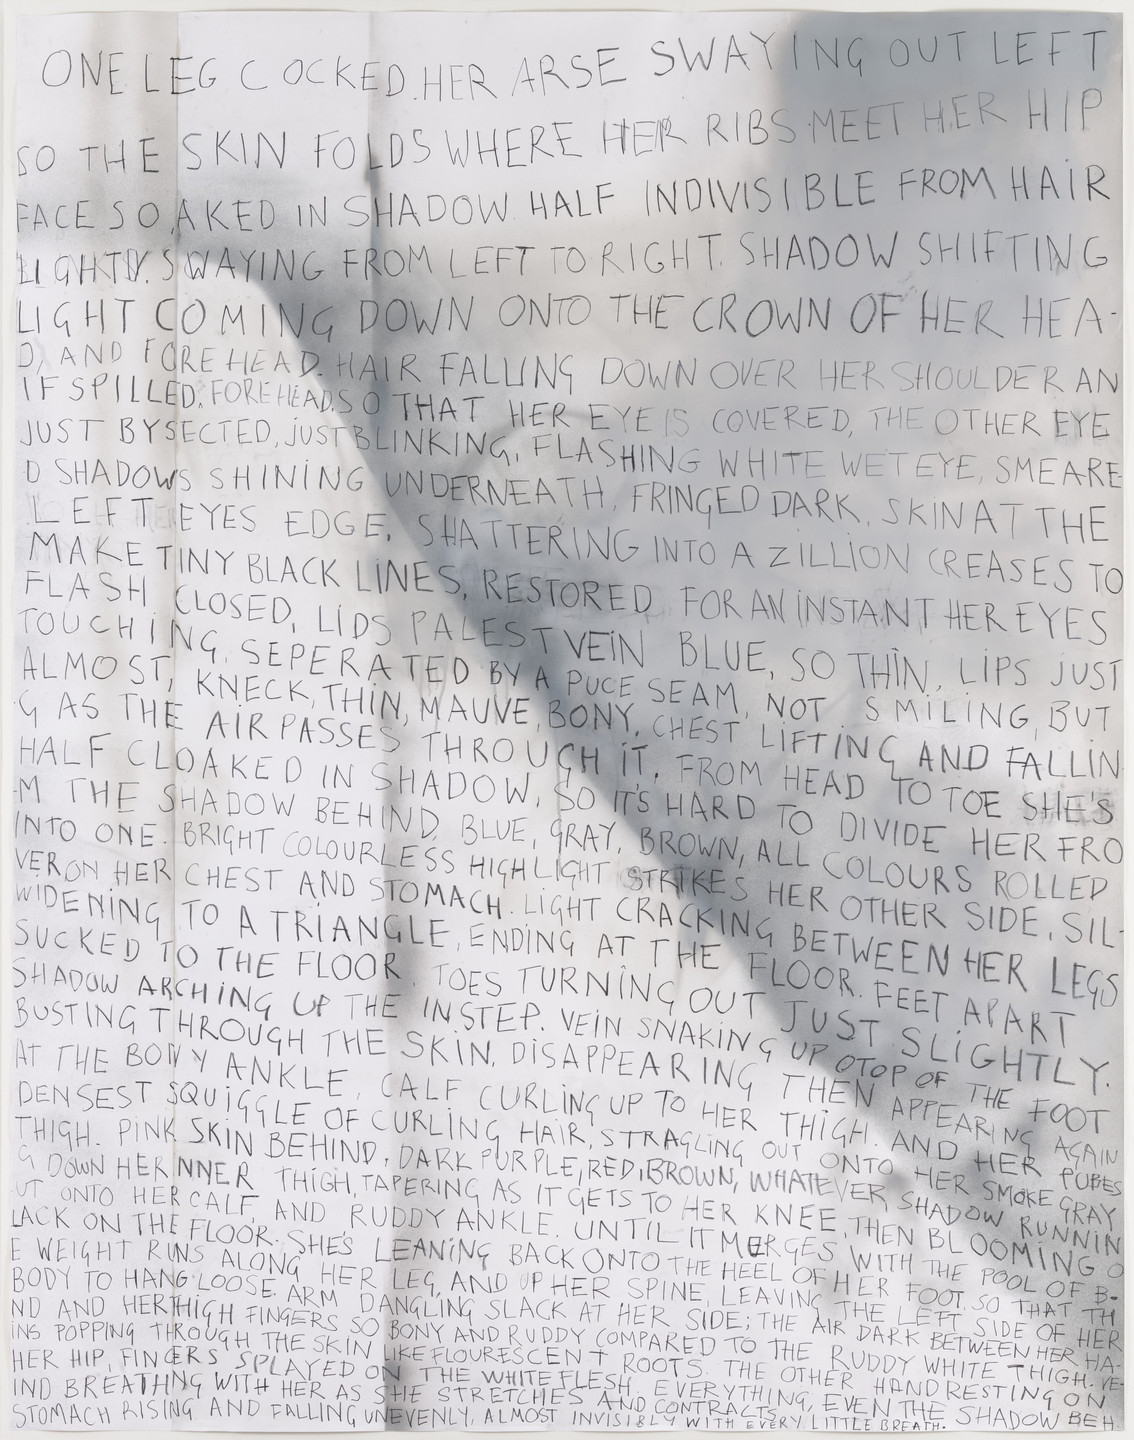 ONE LEG COCKED. HER ARSE SWAYING OUT LEFT
SO THE SKIN FOLDS WHERE HER RIBS MEET HER HIP
FACE SOAKED IN SHADOW. HALF INDIVISIBLE FROM HAIR
LIGHTLY. SWAYING FROM LEFT TO RIGHT. SHADOW SHIFTING
LIGHT COMING DOWN ONTO THE CROWN OF HER HEA-
D, AND FOREHEAD. HAIR FALLING DOWN OVER HER SHOULDER AN
IF SPILLED. FOREHEAD. SO THAT HER EYE IS COVERED, THE OTHER EYE
JUST BYSECTED, JUST BLINKING, FLASHING WHITE WET EYE, SMEARE-
D SHADOWS SHINING UNDERNEATH, FRINGED DARK, SKIN AT THE
LEFT EYES EDGE, SHATTERING INTO A ZILLION CREASES TO
MAKE TINY BLACK LINES, RESTORED FOR AN INSTANT HER EYES
FLASH CLOSED, LIDS PALEST VEIN BLUE, SO THIN, LIPS JUST
TOUCHING, SEPERATED BY A PUCE SEAM, NOT SMILING, BUT
ALMOST, KNECK, THIN, MAUVE, BONY, CHEST LIFTING AND FALLIN
G AS THE AIR PASSES THROUGH IT, FROM HEAD TO TOE SHE'S
HALF CLOAKED IN SHADOW, SO IT'S HARD TO DIVIDE HER FRO
-M THE SHADOW BEHIND, BLUE, GRAY, BROWN, ALL COLOURS ROLLED
INTO ONE. BRIGHT COLOURLESS HIGHLIGHT STRIKES HER OTHER SIDE, SIL-
VER ON HER CHEST AND STOMACH. LIGHT CRACKING BETWEEN HER LEGS
WIDENING TO A TRIANGLE, ENDING AT THE FLOOR. FEET APART
SUCKED TO THE FLOOR. TOES TURNING OUT JUST SLIGHTLY.
SHADOW ARCHING UP THE INSTEP. VEIN SNAKING UP OTOP OF THE FOOT
BUSTING THROUGH THE SKIN, DISAPPEARING THEN APPEARING AGAIN
AT THE BONY ANKLE, CALF CURLING UP TO HER THIGH. AND HER PUBES
DENSEST SQUIGGLE OF CURLING HAIR, STRAGLING OUT ONTO HER SMOKE GRAY
THIGH. PINK SKIN BEHIND, DARK PURPLE, RED, BROWN, WHATEVER, SHADOW RUNNIN
G DOWN HER NNER THIGH, TAPERING AS IT GETS TO HER KNEE, THEN BLOOMING O
UT ONTO HER CALF, AND RUDDY ANKLE. UNTIL IT MERGES WITH THE POOL OF B-
LACK ON THE FLOOR. SHE'S LEANING BACK ONTO THE HEEL OF HER FOOT, SO THAT TH
E WEIGHT RUNS ALONG HER LEG, AND UP HER SPINE, LEAVING THE LEFT SIDE OF HER
BODY TO HANG LOOSE. ARM DANGLING SLACK AT HER SIDE; THE AIR DARK BETWEEN HER HA-
ND AND HER THIGH FINGERS SO BONY AND RUDDY COMPARED TO THE RUDDY WHITE THIGH. VE-
INS POPPING THROUGH THE SKIN LIKE FLOURESCENT ROOTS. THE OTHER HAND RESTING ON
HER HIP, FINGERS SPLAYED ON THE WHITE FLESH. EVERYTHING, EVEN THE SHADOW BEH-
IND BREATHING WITH HER AS SHE STRETCHES AND CONTRACTS,
STOMACH RISING AND FALLING UNEVENLY, ALMOST INVISIBLY WITH EVERY LITTLE BREATH.